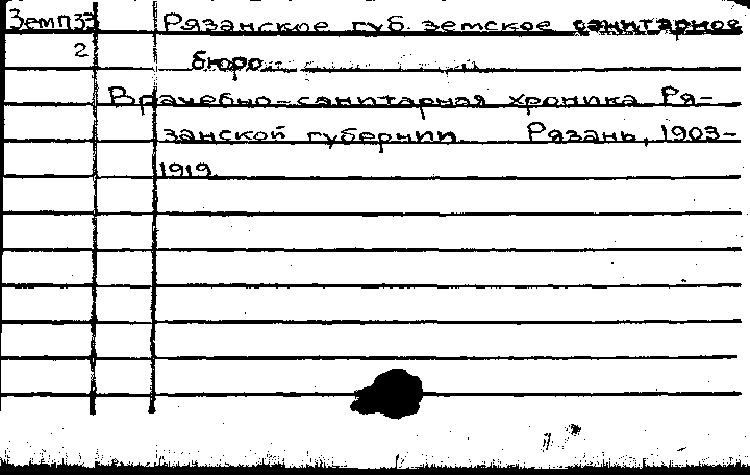 Земп33 Рязанское губ. земское санитарное
2 бюро.
Врачебно-санитарная хроника Ря-
занской губернии. Рязань, 1903-
1919.